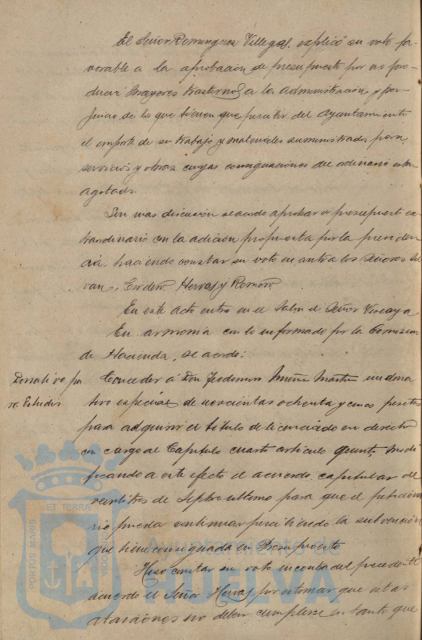 El Señor Dominguez Villegas, explicó su voto fa-
vorable a la aprobacion de presupuesto por no pro-
ducir mayores trastornos a la administracion, y per-
juicio de los que tienen que percibir del Ayuntamiento
el importe de su trabajo y materiales suministrados para
servicios y obras cuyas consignaciones del ordinario estan
agotadas.
Sin mas discusion se acordó aprobar el presupuesto ex-
traordinario con la adicion propuesta por la presiden-
cia, haciendo constar su voto en contra los Señores
Cordero, Hervas y Romero
En este acto entra en el Salon el Señor Vizcaya
En armonia con lo informado por la Comision
de Hacienda, se acordó:
Donativo pa
ra Estudios
Conceder á Don Jiménez Martin un dona-
tivo especial de novecientas ochenta y cinco pesetas
para adquirir el titulo de licenciado en derecho
con cargo al Capitulo cuarto articulo quinto, modi-
ficando a este efecto el acuerdo capitular del
veintitres de Septbre ultimo para que el peticiona-
rio pueda continuar percibiendo la subvencion
que tiene consignada en Presupuesto
Hizo constar su voto en contra del precedente
acuerdo el Señor Hervas por estimar que estas
atenciones no deben cumplirse en tanto que
PORTUS MARIS
ET TERRAE
Ayuntamiento de
HUELVA